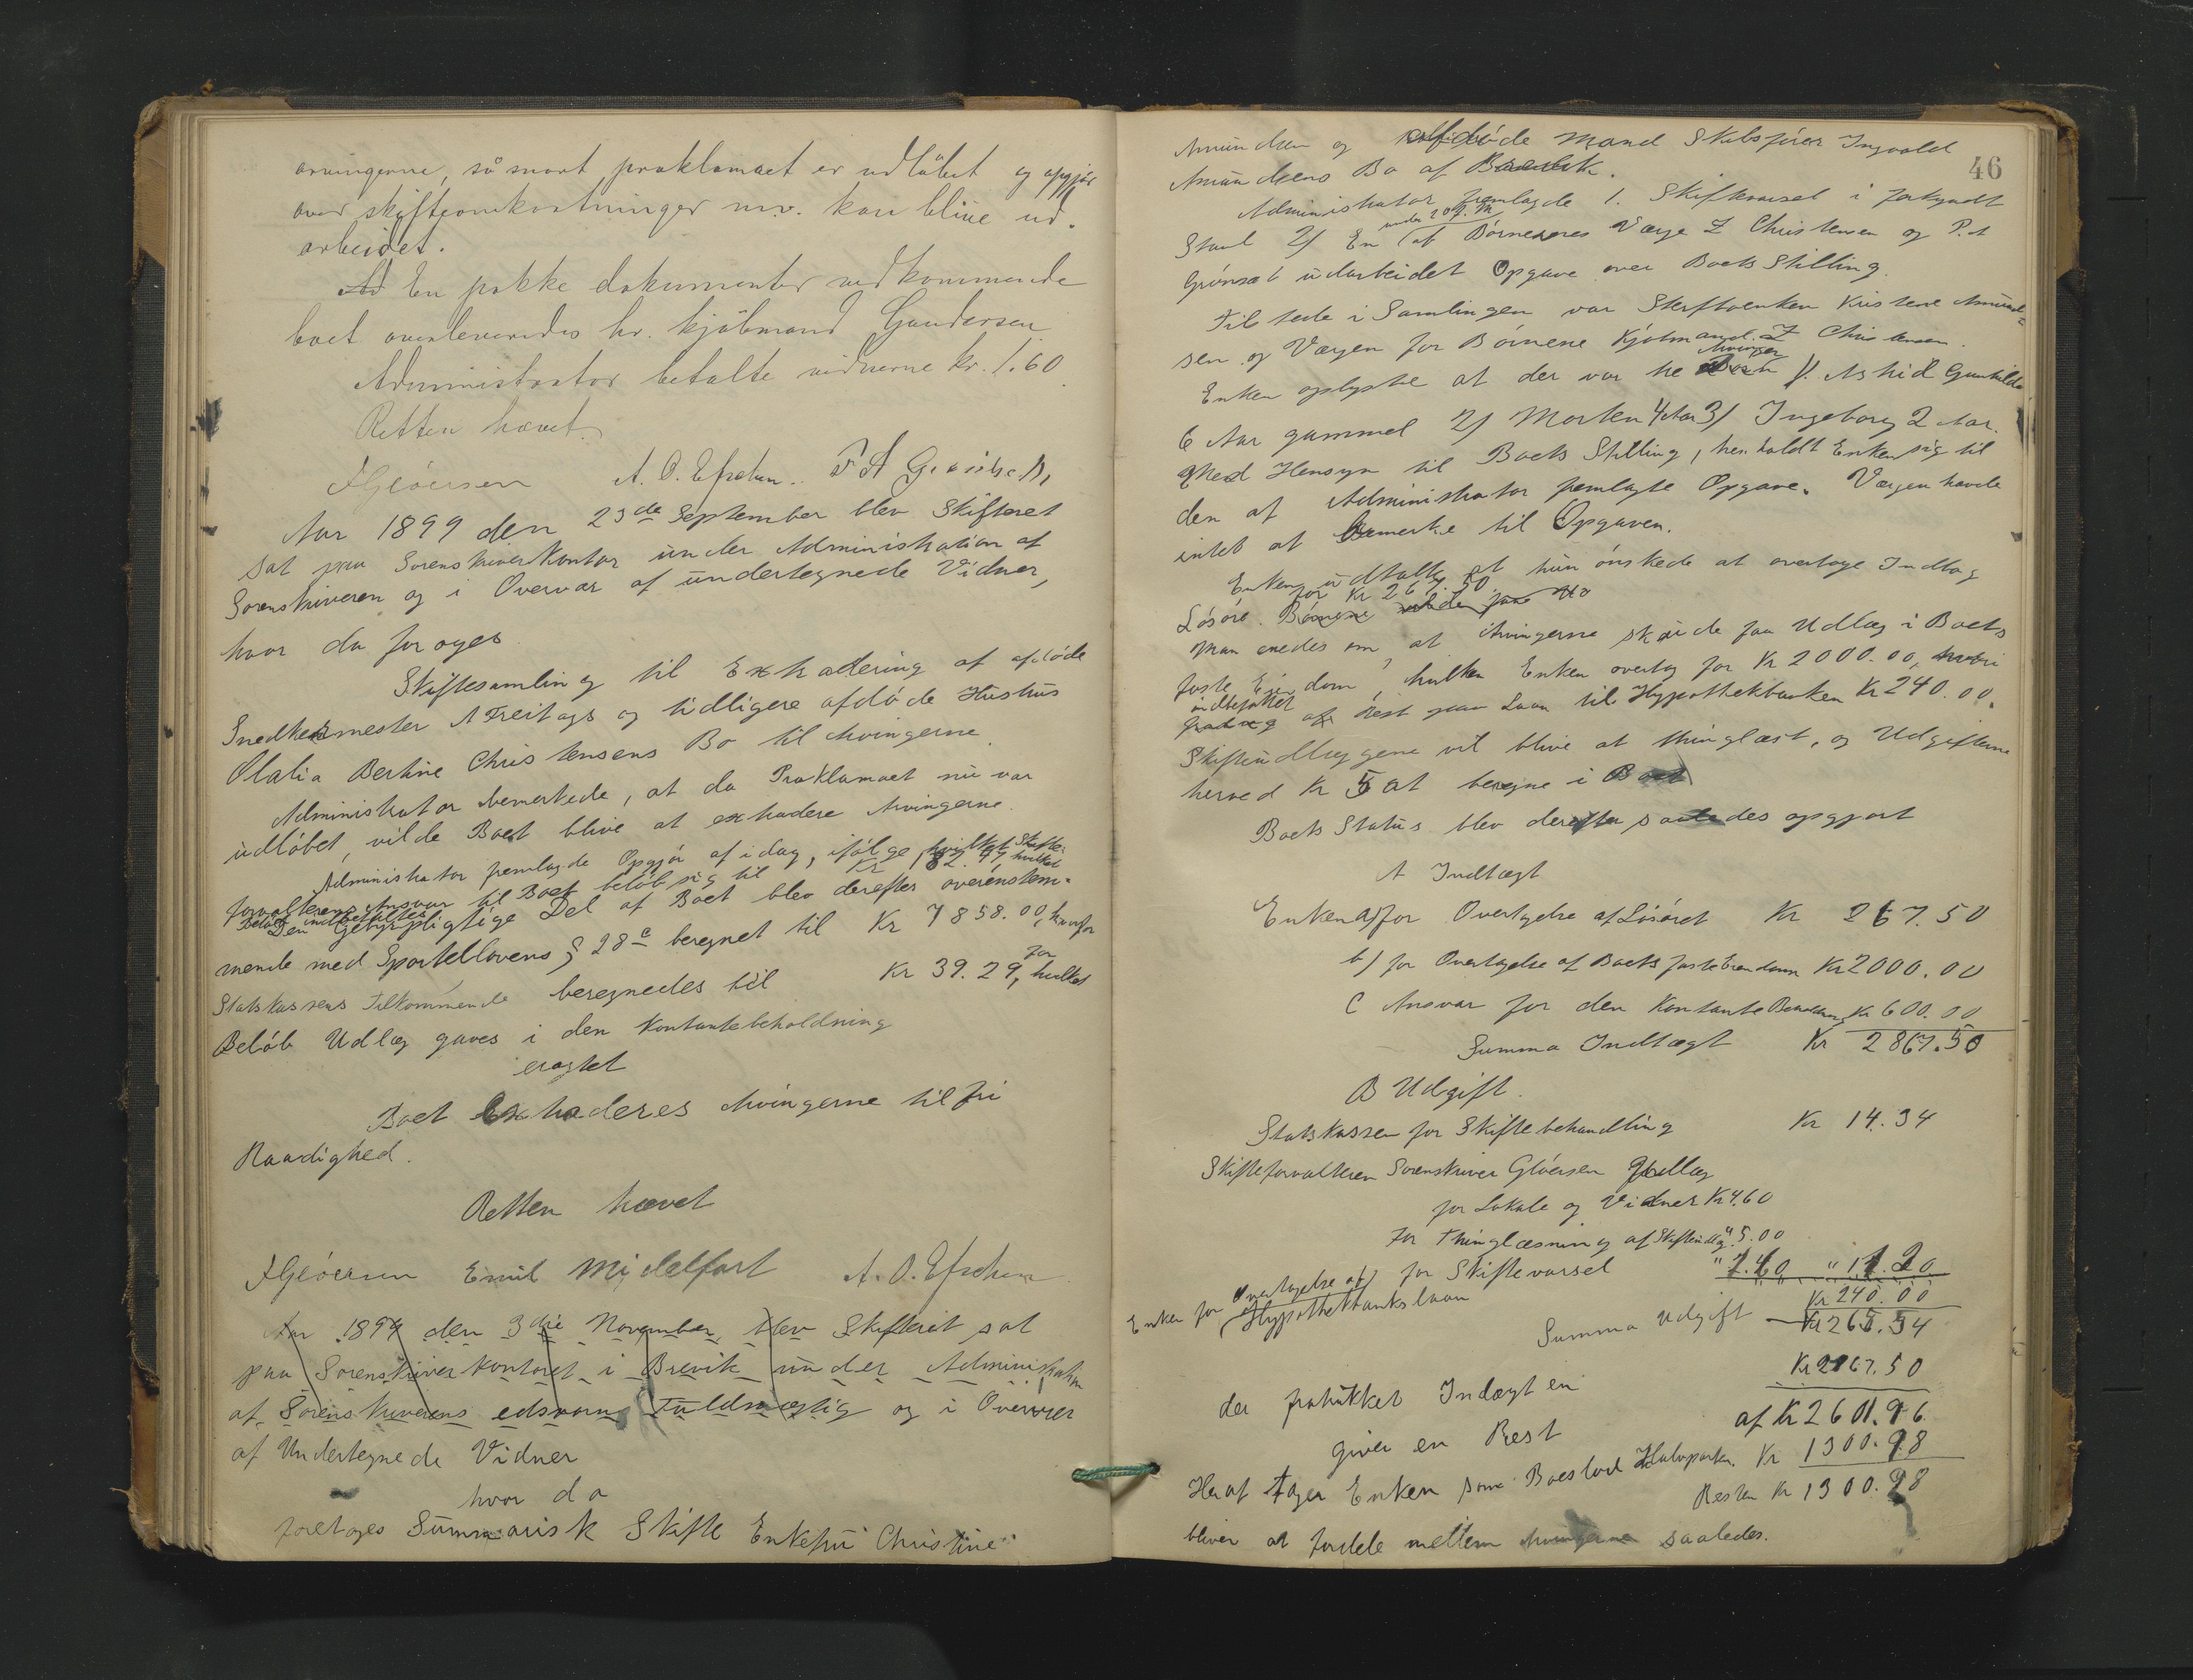 arvingerne, så snart proklamaet er udløbet og opgjør
over skifteomkostninger m.v. kan blive ud-
arbeidet.
En pakke dokumenter vedkommende
boet overleveredes hr. kjøbmand Gundersen
Administrator betalte vidnerne kr. 1.60
Retten hævet.
Gløersen A. O. Efretsen
Aar 1899 den 23de September blev Skifteret
sat paa Sorenskriverkontor under Administration af
Sorenskriveren og i Overvær af undertegnede Vidner,
hvor da foretoges
Skiftesamling til Extradering af afdøde
Snedkermester A Freitags og tidligere afdøde Hustrus
Olalia Bertine Christensens Bo til Arvingerne.
Administrator bemerkede, at da Proklamaet nu var
udløbet, vilde Boet blive at extradere Arvingerne.
Administrator fremlagde Opgjør af idag, ifølge hvilket Skifte-
forvalterens Ansvar til Boet beløb sig til Kr 82.97 hvilket
Beløb indbetaltes
Den Gebyrpligtige Del af Boet blev derefter overensstem-
mende med Sportellovens § 28 c beregnet til Kr 7858.00, hvorfor
Statskassens Tilkommende beregnedes til Kr 39.29, for hvilket
Beløb Udlæg gaves i den Kontantebeholdning
eragtet
Boet Extraderes Arvingerne til fri
Raadighed.
Retten hævet
Gløersen Emil Midelfart A. O. Efretsen
Aar 1899 den 3die November blev Skifteret sat
paa Sorenskriverkontoret i Brevik under Administration
af Sorenskriverens edsvorne Fuldmægtig og i Overvær
af Undertegnede Vidner
hvor da
foretoges Summarisk Skifte Enkefru Christine
46
Amundsen og afdøde Mand Skibsfører Ingvald
Amundsens Bo af Brevik.
Administrator fremlagde 1. Skiftevarsel i forkyndt
Stand 2/ En under 20 af Børnenes Værge Z Christensen og P. A
Grønsæt udarbeidet Opgave over Boets Stilling.
Tilstede i Samlingen var Sterfboenken Kristine Amund=
sen og Værgen for Børnene Kjøbmand Z Christensen.
Enken oplyste at der var tre Arvinger 1/. Astrid Gunhilda
6 Aar gammel 2/ Morten 4 Aar 3/ Ingeborg 2 Aar.
Med Hensyn til Boets Stilling, henholdt Enken sig til
den af Administrator fremlagte Opgave. Værgen havde
intet at bemerke til Opgaven.
Enken udtalte at hun ønskede at overtage Indbo og
Løsøre for Kr 267.50
Man enedes om, at Arvingerne skulde faa Udlæg i Boets
faste Eiendom, hvilken Enken overtog for Kr 2000.00, hvori
indbefattet
Rest paa Laan til Hypothekbanken Kr 240.00.
Skifteudlæggene vil blive at thinglæst, og Udgifterne
herved Kr 5 at beregne i Boet
Boets Status blev derefter saaledes opgjort
A Indtægt
Enken a) for Overtagelse af Løsøret Kr 267.50
b) for Overtagelse af Boets faste Eiendom Kr 2000.00
C Ansvar for den Kontante Beholdning Kr 600.00
Summa Indtægt Kr 2867.50
B Udgift.
Statskassen for Skiftebehandling Kr 14.34
Skifteforvalteren Sorenskriver Gløersen Udlæg
for Lokale og Vidner Kr 4.60
For Thinglæsning af Skifteudlæg " 5.00
for Skiftevarsel
Enken for Overtagelse af
Hypothekbankslaan Kr 240.00
Summa Udgift
der fratrukket Indtægten Kr 2867.50
giver en Rest af Kr 2601.96
Heraf tager Enken som Boeslod Halvparten. Kr 1300.98
Resten Kr 1300.98
bliver at fordele mellem Arvingerne saaledes.